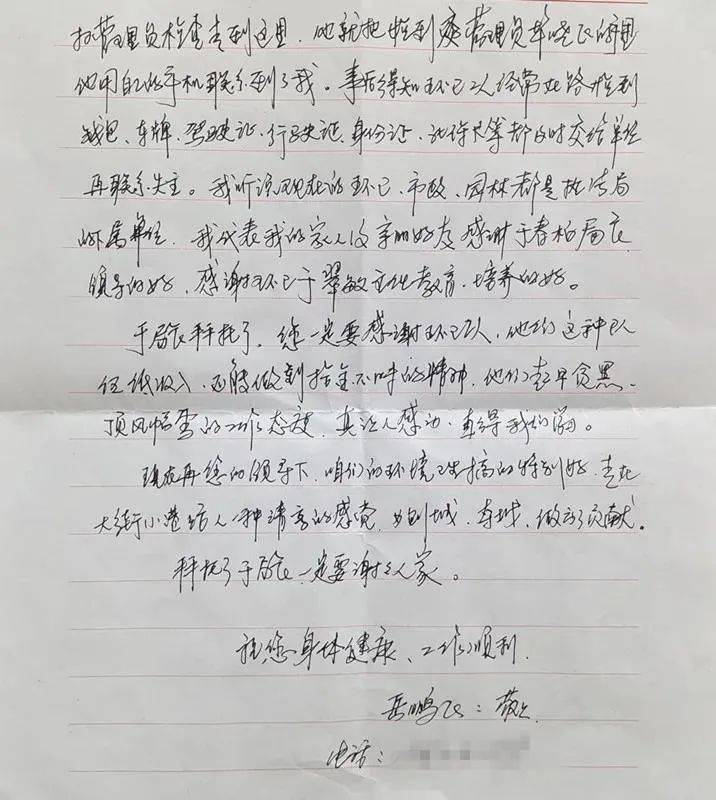 扒管理员检查走到这里，他就把捡到交管理员毕晓飞的手里
他用自己的手机联系到了我。事后得知环卫工人经常在路捡到
钱包、车牌、驾驶证、行驶证、身份证、银行卡等都及时交给单位
再联系失主。我听说现在的环卫、市政、园林都是执法局
下属单位，我代表我的家人及亲朋好友感谢于春柏局长
领导的好，感谢环卫于翠敏主任教育、培养的好。
于局长拜托了，您一定要感谢环卫工人，他们这种以
低收入，还能做到拾金不昧的精神，他们起早贪黑、
顶风冒雪的工作态度，真让人感动，值得我们学习。
现在再您的领导下，咱们的环境卫生搞的特别好，走在
大街小巷给人一种清亮的感觉，为创城、夺城，做了贡献。
拜托了于局长一定要谢谢人家。
祝您身体健康、工作顺利
岳鹏飞：敬上
电话：